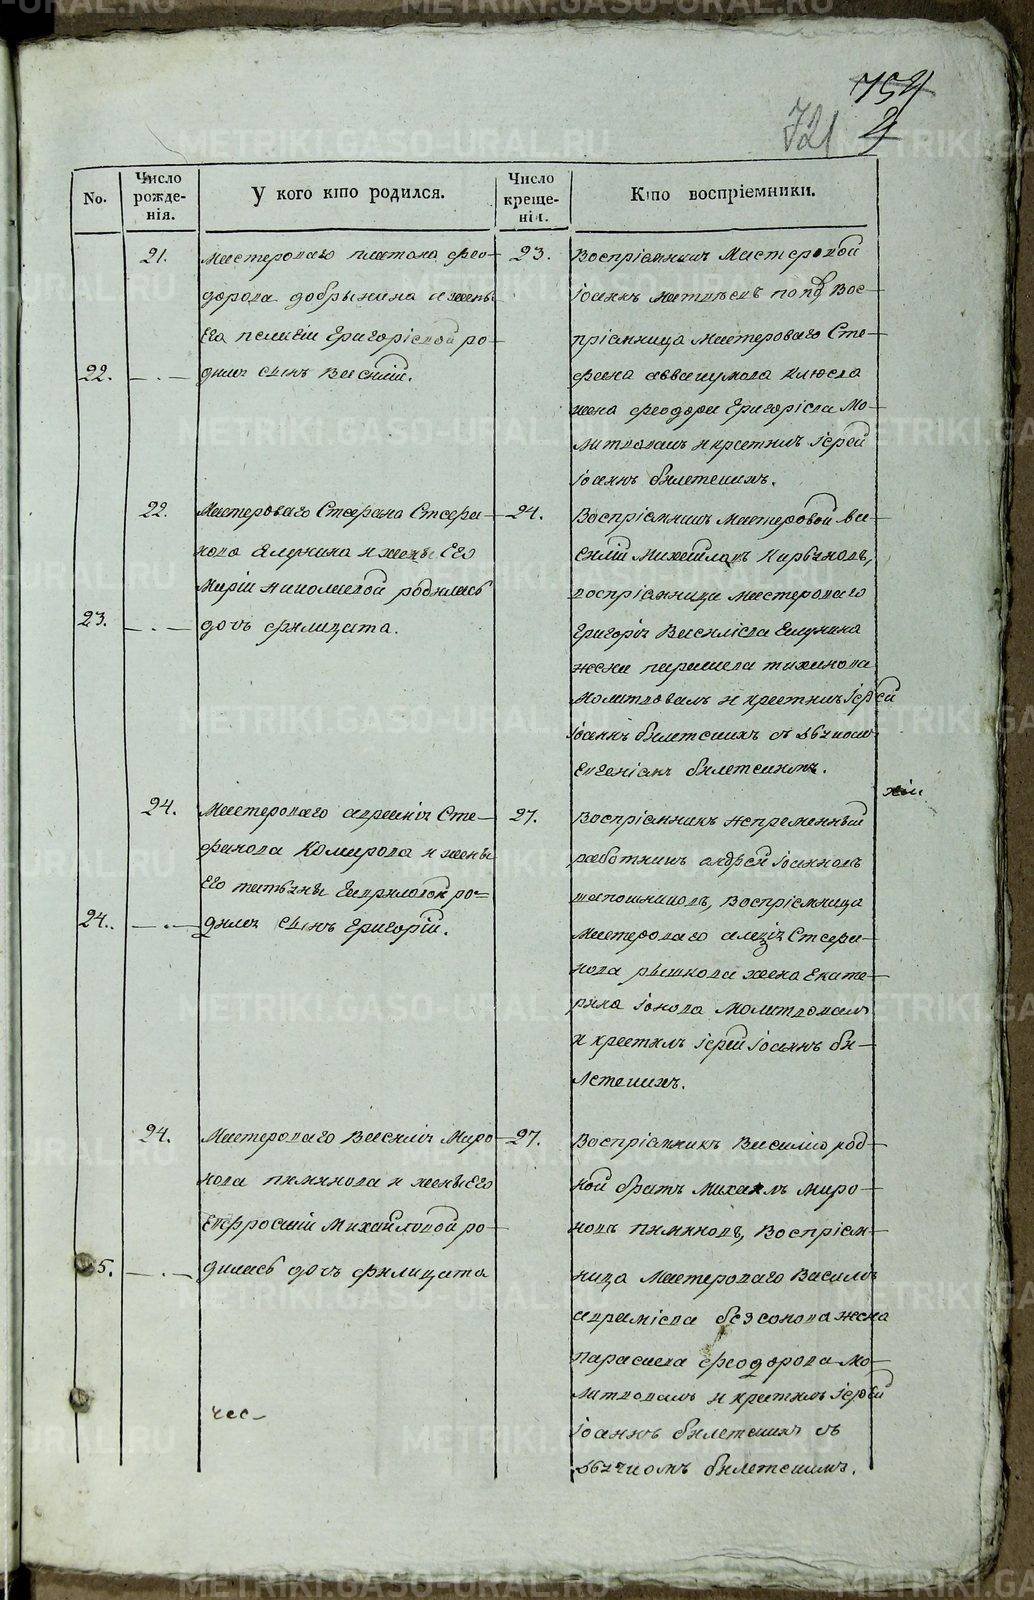 754
721 2
No.
Число рожде-нія.
У кого кто родился.
Число креще-нія.
Кто воспріемники.
21.
Мастероваго платона фео-
дорова добрынина и жены
Его пелагіи Григоріевой ро-
22.
дился сынъ Василій.
23.
Воспріемникъ Мастеровой
іоаннъ матвѣевъ поповъ Вос-
пріемница Мастероваго Сте-
фана аввакумова
жена феодора Григоріева Мо-
литвовалъ и крестилъ іерей
іоаннъ билетскихъ.
22.
Мастероваго Стефана Стефа-
нова и жены Его
Маріи николаевой родилась
23.
дочь филицата.
24.
Воспріемникъ мастеровой ва-
силій Михайловъ Кирычновъ,
воспріемница мастероваго
Григорія Василіева
жена тихонова
молитвовалъ и крестилъ іерей
іоаннъ билетскихъ съ дьячкомъ
Евгеніемъ билетскимъ.
24.
Мастероваго андреяна Сте-
фанова Комарова и жены
Его татьяны Гавриловой ро-
24.
дился сынъ Григорій.
27.
Воспріемникъ непременный
работникъ андрей іоанновъ
шапошниковъ, Воспріемница
мастероваго алексія Стефа-
нова рышкова жена Екате-
рина іонова молитвовалъ
и крестилъ іерей іоаннъ би-
летскихъ.
24.
Мастероваго Василія Миро-
нова пименова и жены Его
Евфросиніи Михайловой ро-
25.
дилась дочь филицата
27.
Воспріемникъ Василію род-
ной братъ Михаилъ миро-
новъ пименовъ, Воспріем-
ница мастероваго Василія
авраміева безсонова жена
параскева феодорова мо-
литвовалъ и крестилъ іерей
іоаннъ билетскихъ съ
дьячкомъ билетскимъ.
чес-
METRIKI.GASO-URAL.RU